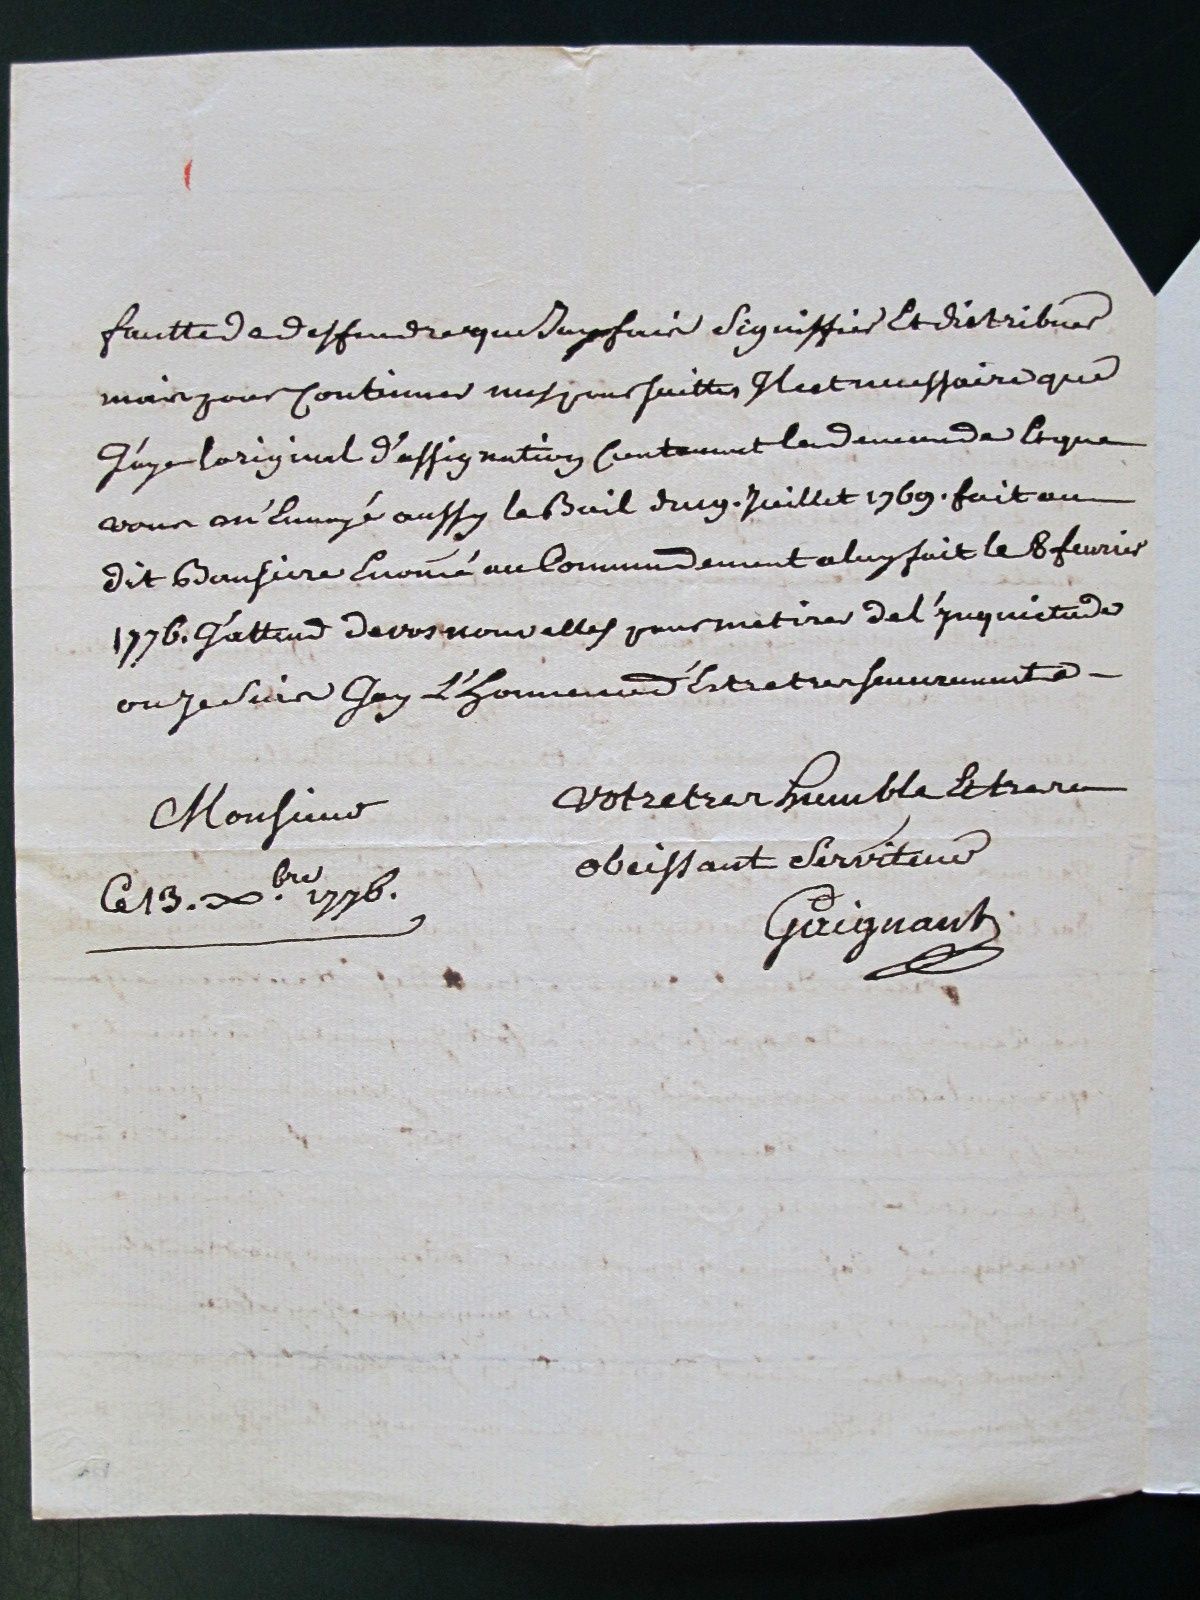 fautte de deffendre que J'ay fait Signiffier Et distribuer
mais pour Continuer mes poursuittes Il est necessaire que
J'aye loriginal d'assignation Contenant la demande Et que
vous m'Envoyé aussy le Bail du 9. Juillet 1769. fait au
dit Enoncé au Commandement a luy fait le 8 feurier
1776. J'attend de vos nouvelles pour me tirer de l'Inquietude
ou Je Suis Jay L'Honneur d'Estre tres
Monsieur
votre tres humble Et tres
obeissant Serviteur
Ce 13. Xbre. 1776.
Guignant